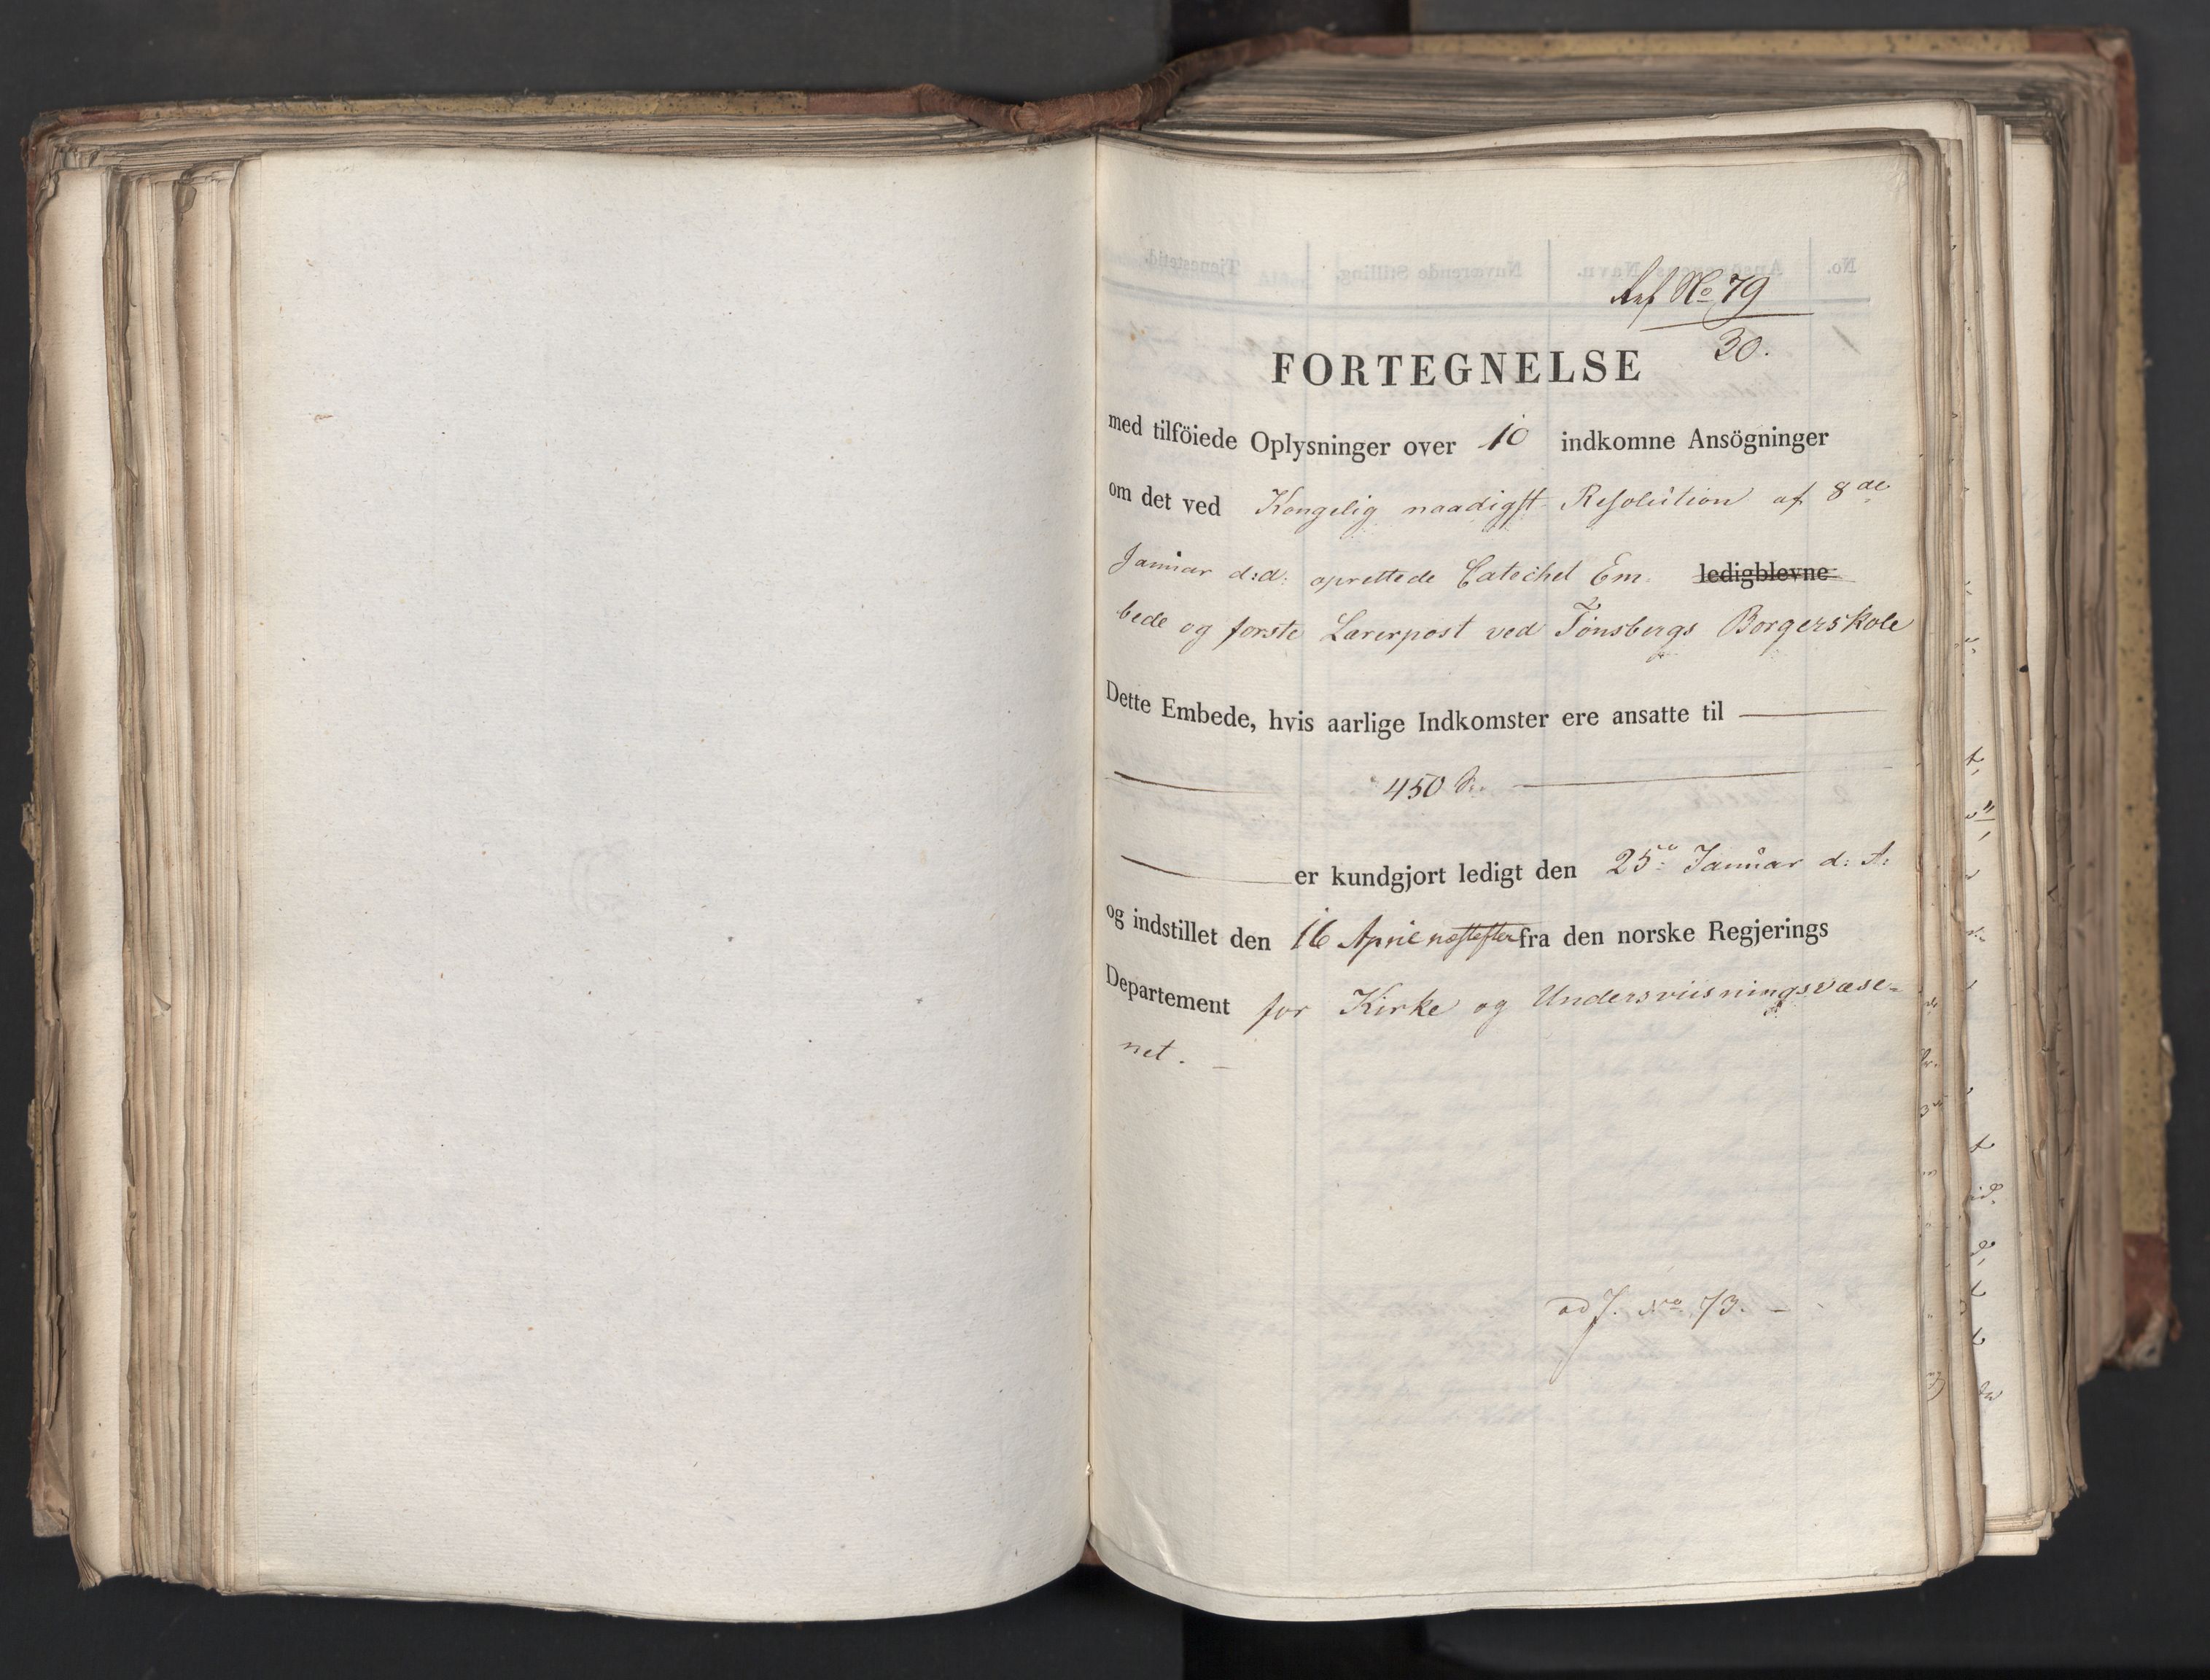 No 79
30.
FORTEGNELSE
med tilföiede Oplysninger over 10 indkomne Ansögninger
om det ved Kongelig naadigst Resolution af 8de
Januar d:A: oprettede Catechet Em- ledigblevne
bede og første Lærerpost ved Tönsbergs Borgerskole
Dette Embede, hvis aarlige Indkomster ere ansatte til
450
er kundgjort ledigt den 25 Januar d: A:
og indstillet den 16 April næstefter fra den norske Regjerings
Departement for Kirke og Underviisningsvæse-
net.
ad J. No 73.